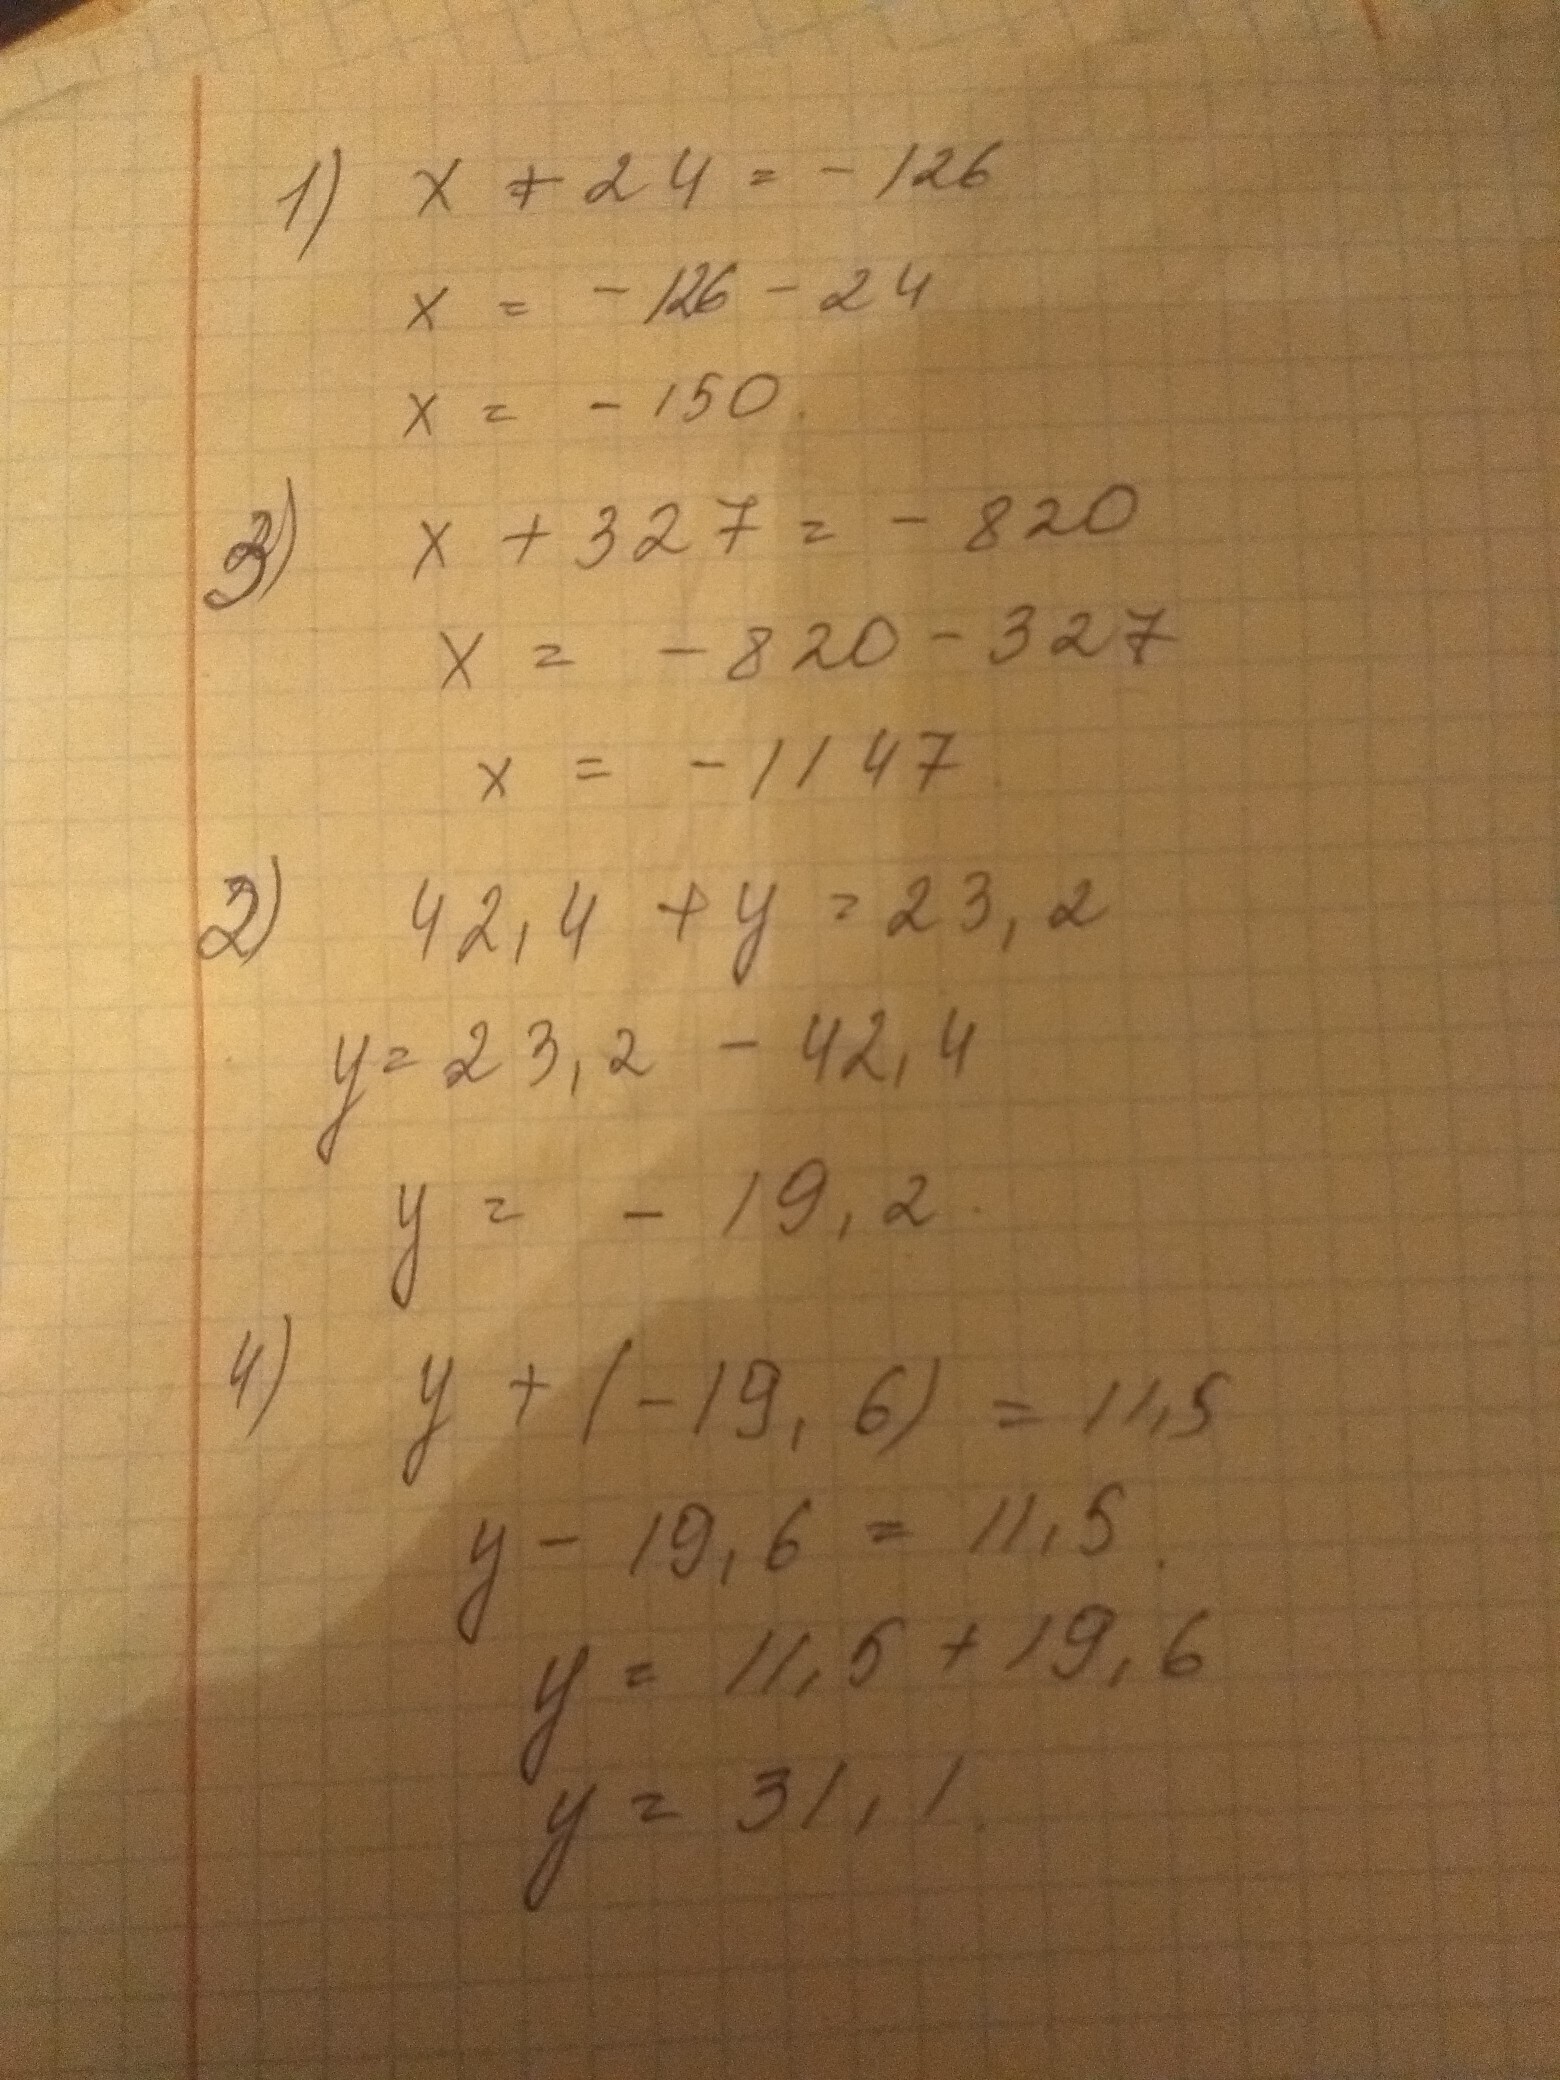 1) x + 24 = - 126
x = - 126 - 24
x = - 150.
3) x + 327 = - 820
x = - 820 - 327
x = - 1147.
2) 42,4 + y = 23,2
y = 23,2 - 42,4
y = - 19,2.
4) y + (-19,6) = 11,5
y - 19,6 = 11,5.
y = 11,5 + 19,6
y = 31,1.